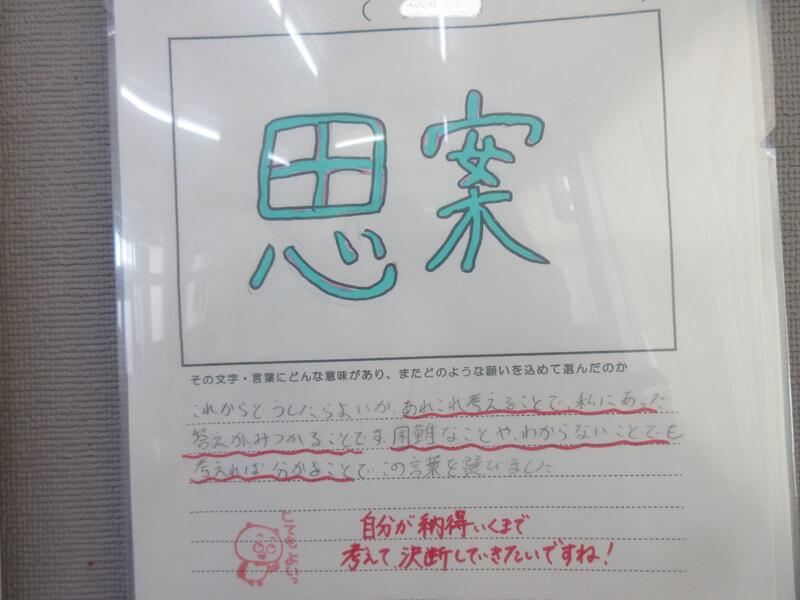 思案
その文字・言葉にどんな意味があり、またどのような願いを込めて選んだのか
これからどうしたらよいか、あれこれ考えることで、私にあった
答えがみつかることです。困難なことや、わからないことでも
考えれば分かることで、この言葉を選びました
自分が納得いくまで
考えて決断していきたいですね!